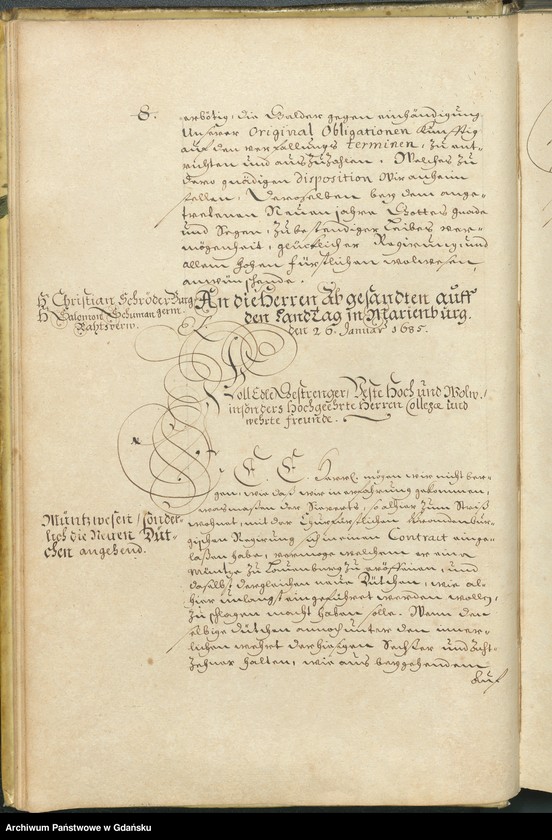 8.
erbötig, die Gelder gegen einhändigung
Unserer Original Obligationen künfftig
auf den verfallungs terminen, zu ent-
richten und auszuzahlen. Welches zu
Dero gnädigen disposition wir anheim
stellen, Deroselben bey dem ange-
tretenen Neuen jahre Gottes gnade
und Segen, zu beständiger Leibes ver-
mögenheit, glücklicher Regierung und
allem hohen fürstlichen wolwesen,
anwünschende.
H. Christian Schröder Burg
H. Salomon Schuman germ.
Rahtsverw.
An die Herren Abgesandten auff
den Landtag in Marienburg.
den 26. Januar 1685.
WollEdle Gestrenger, Veste Hoch und Wolw.
insonders Hochgeehrte Herren Collegæ und
wehrte freunde.
Müntzwesen, sonder-
lich die Neuen Düt-
chen angehend.
E. E. Herrl. mögen wir nicht ber-
gen, wie daß wir in erfahrung gekommen,
was massen der so alhier zum
wohnet, mit der Churfürstlichen Brandenbur-
gischen Regierung sich in einen Contract einge-
laßen habe, vermöge welchem er eine
Müntze zu Lauenburg zu eröffnen, und
daselbst dergleichen neue Dütchen, wie al-
hier unlängst eingeführet werden wollen,
zu schlagen macht haben solle. Wenn den
selbige dütchen annoch unter den inner-
lichen wehrt der hiesigen Sechser und Acht-
zehner halten, wie aus beygehendem
Auf
Archiwum Państwowe w Gdańsku